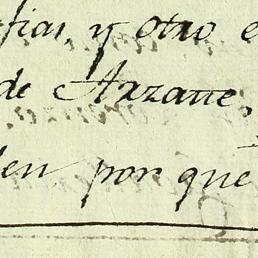 fias, y otro e
de Arzatte,
den por que